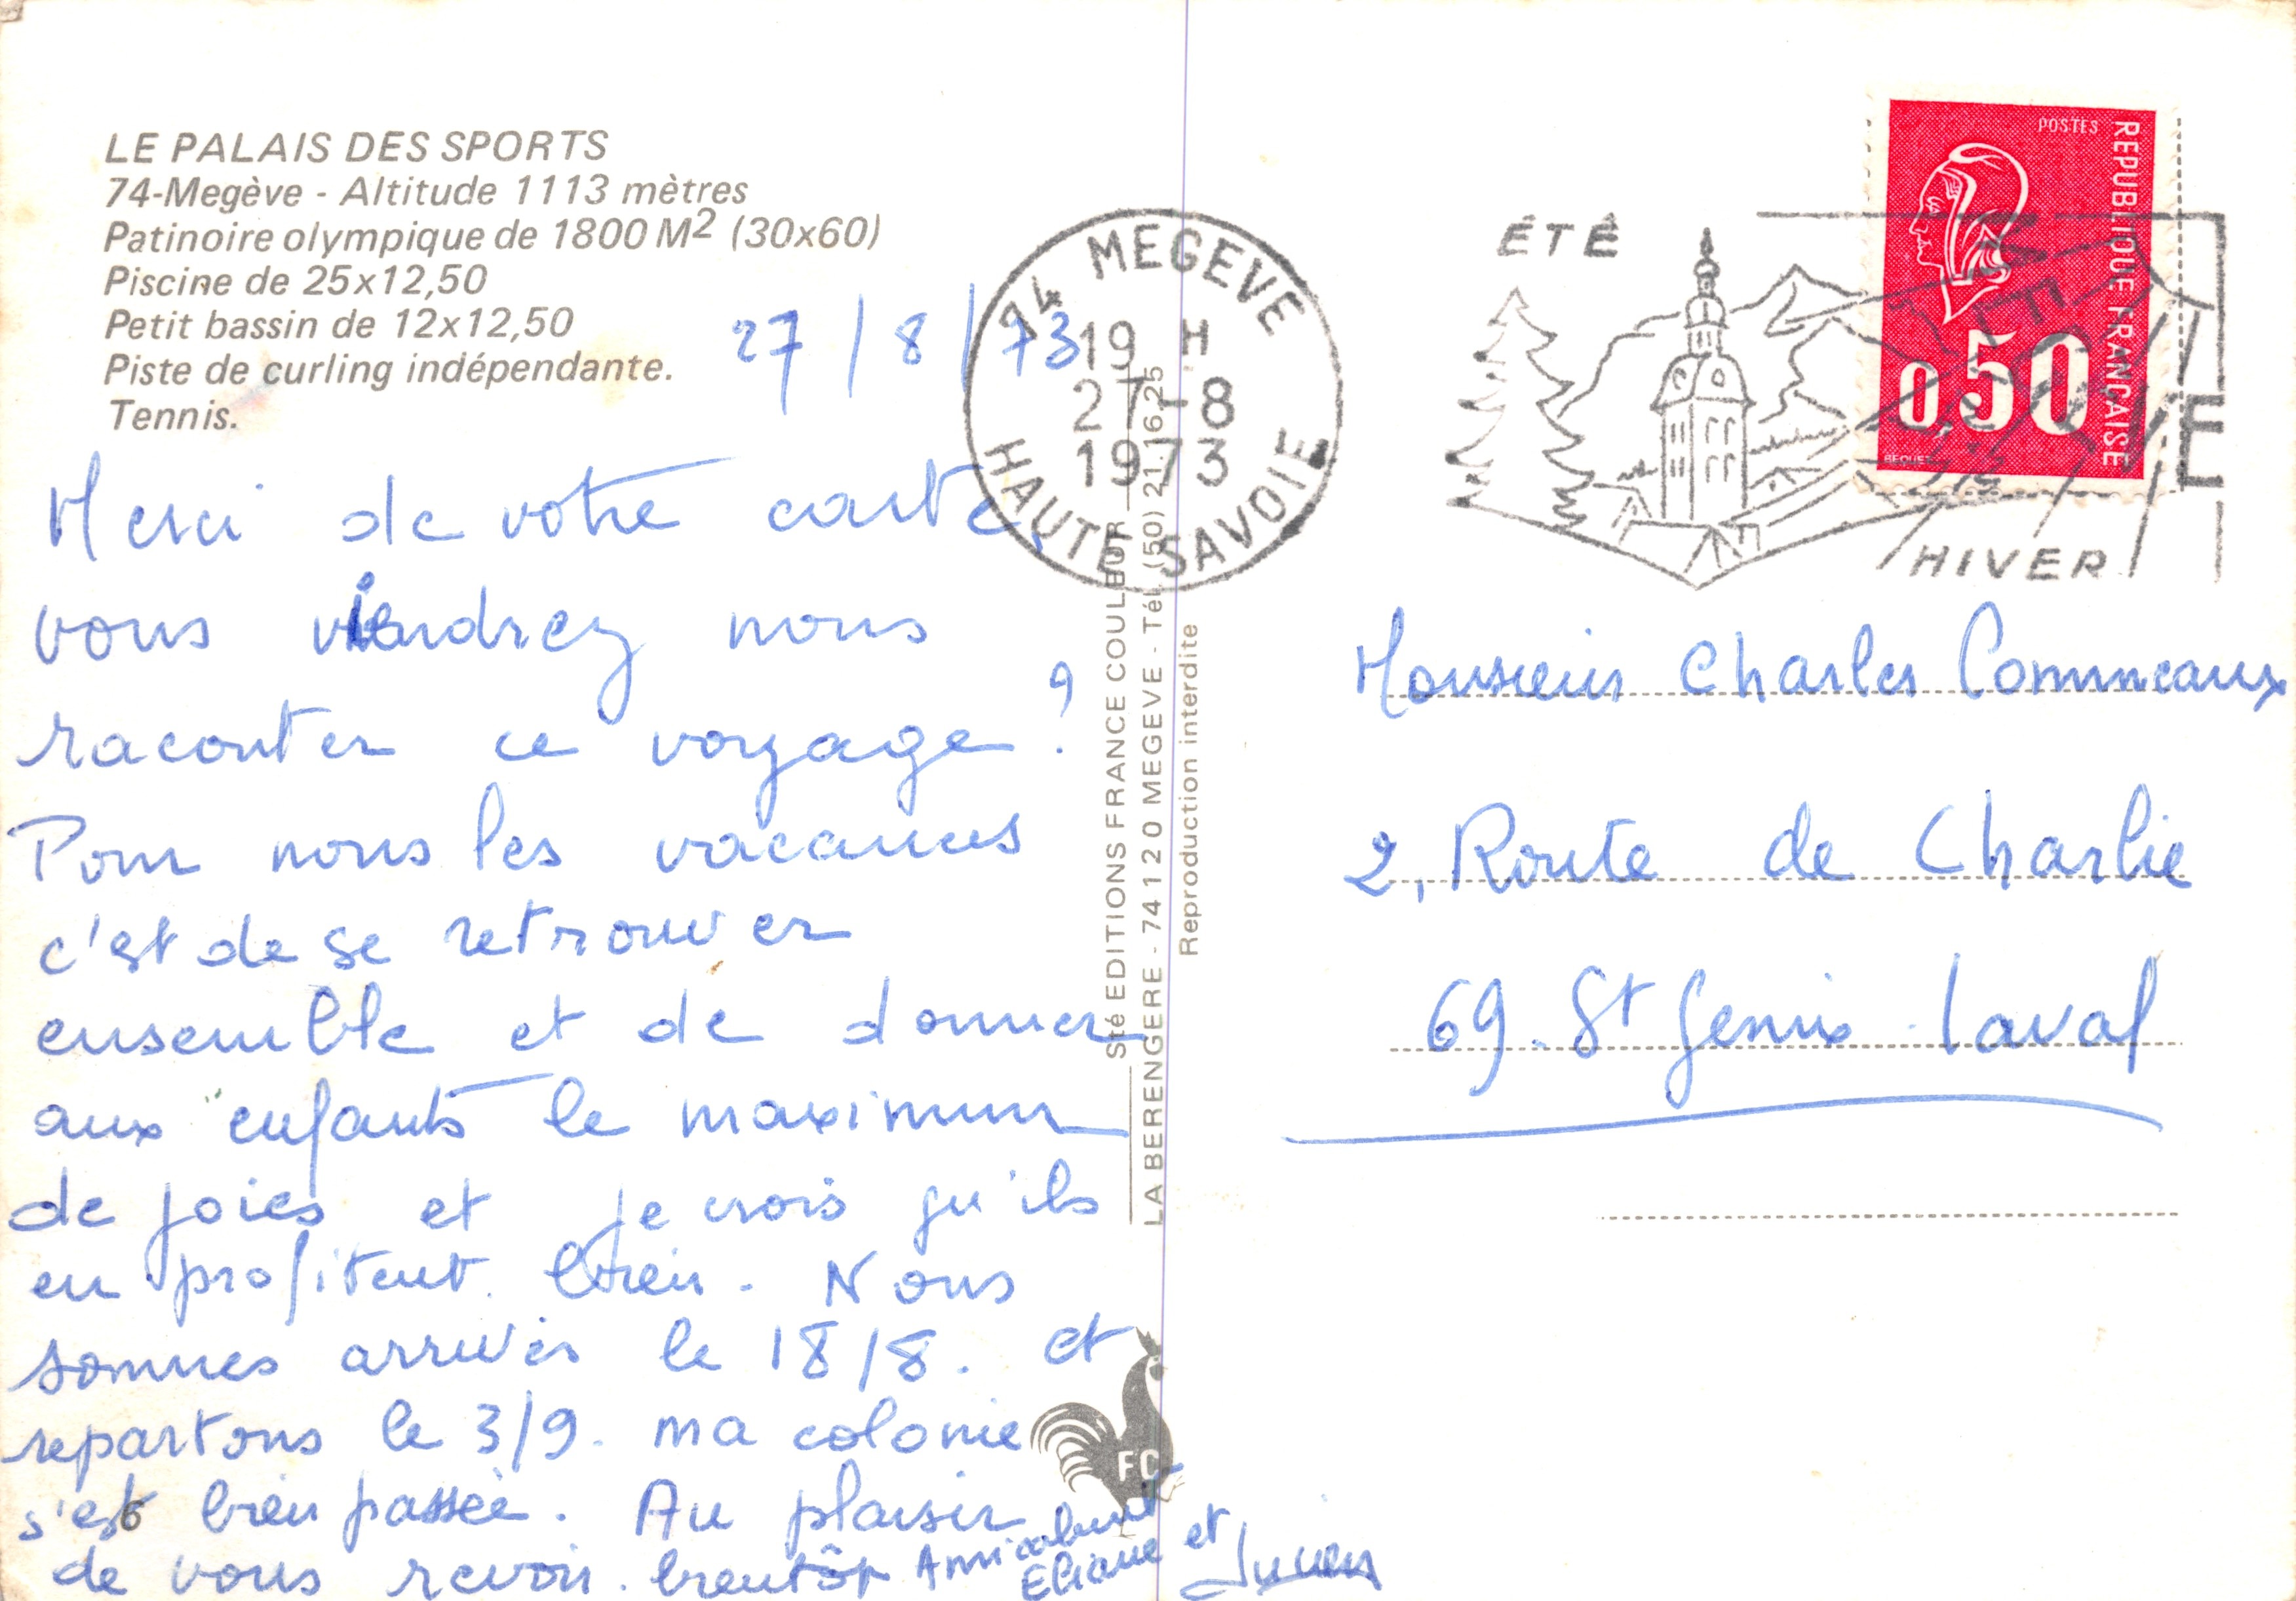 LE PALAIS DES SPORTS
74-Megève - Altitude 1113 mètres
Patinoire olympique de 1800 M2 (30x60)
Piscine de 25x12,50
Petit bassin de 12x12,50
Piste de curling indépendante.
Tennis.
27/8/73
Merci de votre carte,
vous viendrez nous
raconter ce voyage ?
Pour nous les vacances
c'est de se retrouver
ensemble et de donner
aux enfants le maximum
de joies et je crois qu'ils
en profitent bien. Nous
sommes arrivés le 18/8. et
repartons le 3/9. ma colonie
s'est bien passée. Au plaisir
de vous revoir bientôt Amicalement
Eliane et
Sté EDITIONS FRANCE COULEUR
LA BERENGERE - 74120 MEGEVE - Tél. (50) 21.16.25
Reproduction interdite
FC
74 MEGEVE
19 H
27-8
1973
HAUTE SAVOIE
ÉTÉ
HIVER
POSTES
REPUBLIQUE FRANCAISE
0,50
BEQUET
Monsieur Charles Commeaux
2, Route de Charlie
69. St Genis Laval